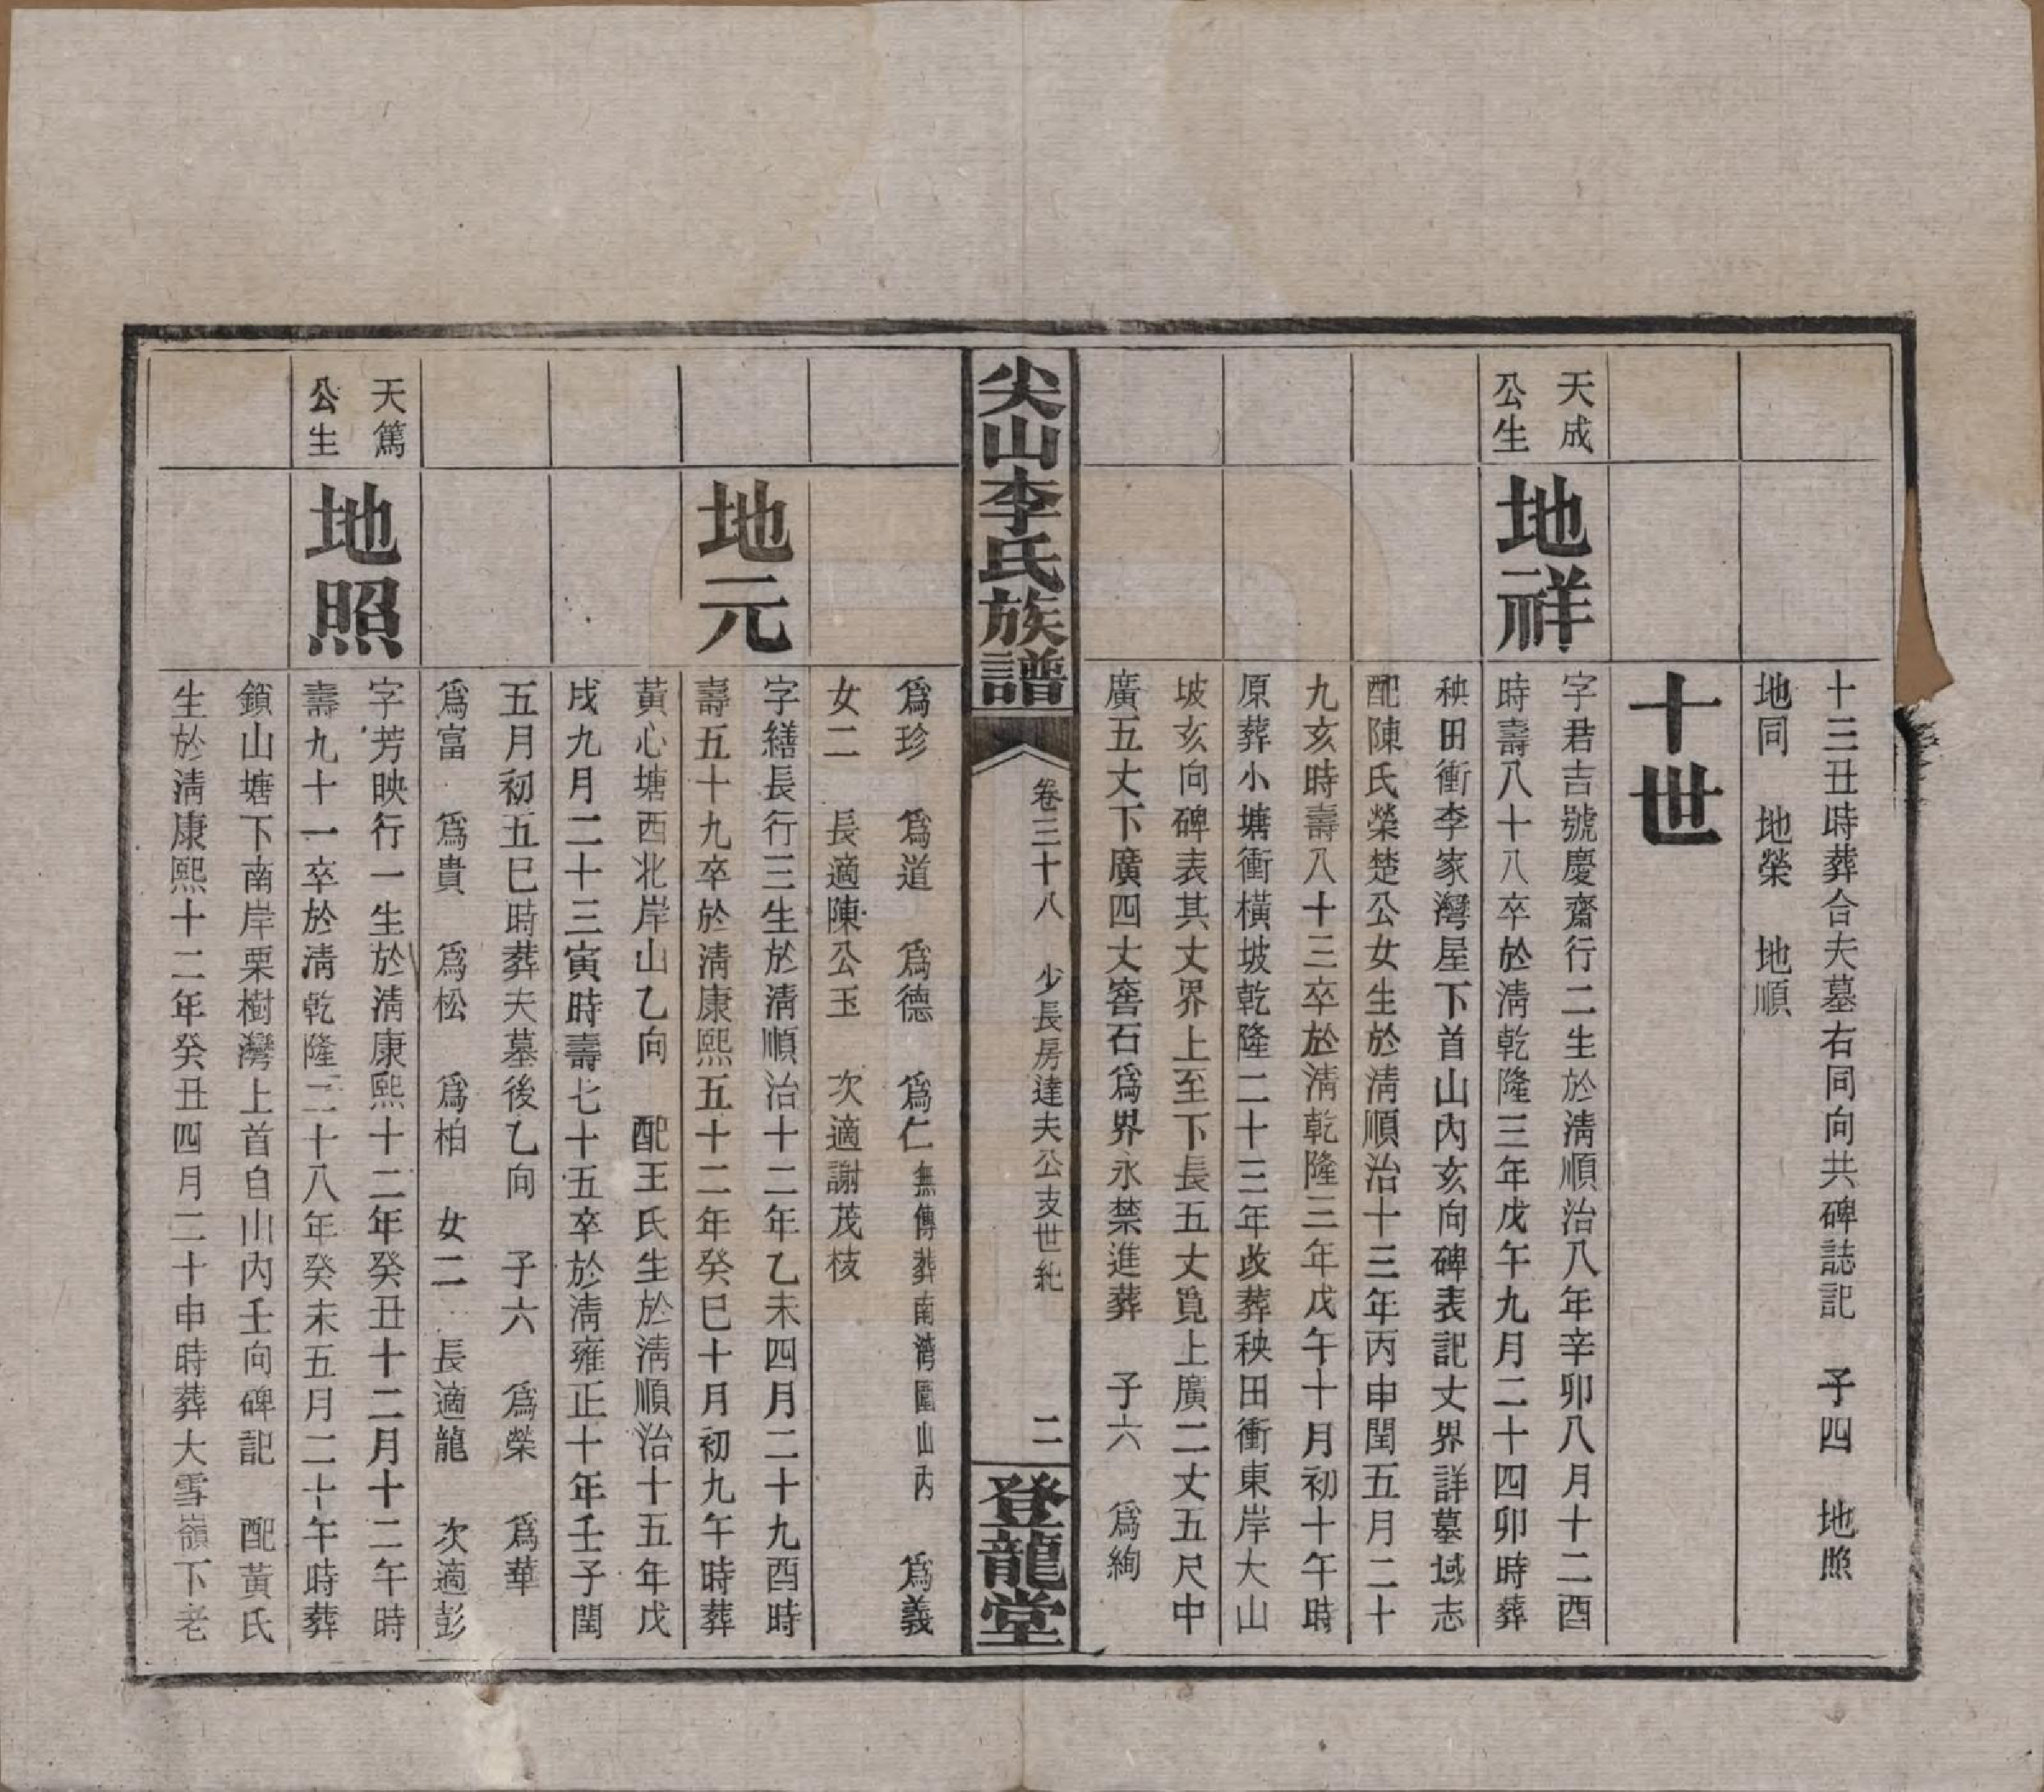 十三丑時葬合夫墓右同向共碑誌記　子四　地照
地同　地榮　地順
十世
天成
公生
地祥
字君吉號慶齋行二生於淸順治八年辛卯八月十二酉
時壽八十八卒於淸乾隆三年戊午九月二十四卯時葬
秧田衝李家灣屋下首山內亥向碑表記丈界詳墓域志
配陳氏榮楚公女生於淸順治十三年丙申閏五月二十
九亥時壽八十三卒於淸乾隆三年戊午十月初十午時
原葬小塘衝橫坡乾隆二十三年改葬秧田衝東岸大山
坡亥向碑表其丈界上至下長五丈覓上廣二丈五尺中
廣五丈下廣四丈窖石爲界永禁進葬　子六　爲絢
尖山李氏族譜
卷三十八　少長房達夫公支世紀　二
登龍堂
爲珍　爲道　爲德　爲仁無傳葬南灣圍山內　爲義
女二　長適陳公玉　次適謝茂枝
地元
字繕長行三生於淸順治十二年乙未四月二十九酉時
壽五十九卒於淸康熙五十二年癸巳十月初九午時葬
黃心塘西北岸山乙向　配王氏生於淸順治十五年戊
戌九月二十三寅時壽七十五卒於淸雍正十年壬子閏
五月初五巳時葬夫墓後乙向　子六　爲榮　爲華
爲富　爲貴　爲松　爲柏　女二　長適龍　次適彭
天篤
公生
地照
字芳映行一生於淸康熙十二年癸丑十二月十二午時
壽九十一卒於淸乾隆二十八年癸未五月二十午時葬
鎖山塘下南岸栗樹灣上首自山內壬向碑記　配黃氏
生於淸康熙十二年癸丑四月二十申時葬大雪嶺下老